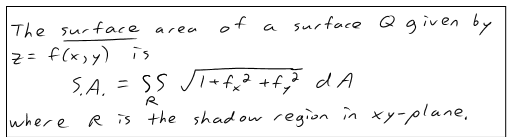 The surface area of a surface Q given by
z = f(x,y) is
S.A. = ∬_R √(1+f_x²+f_y²) dA
where R is the shadow region in xy-plane.